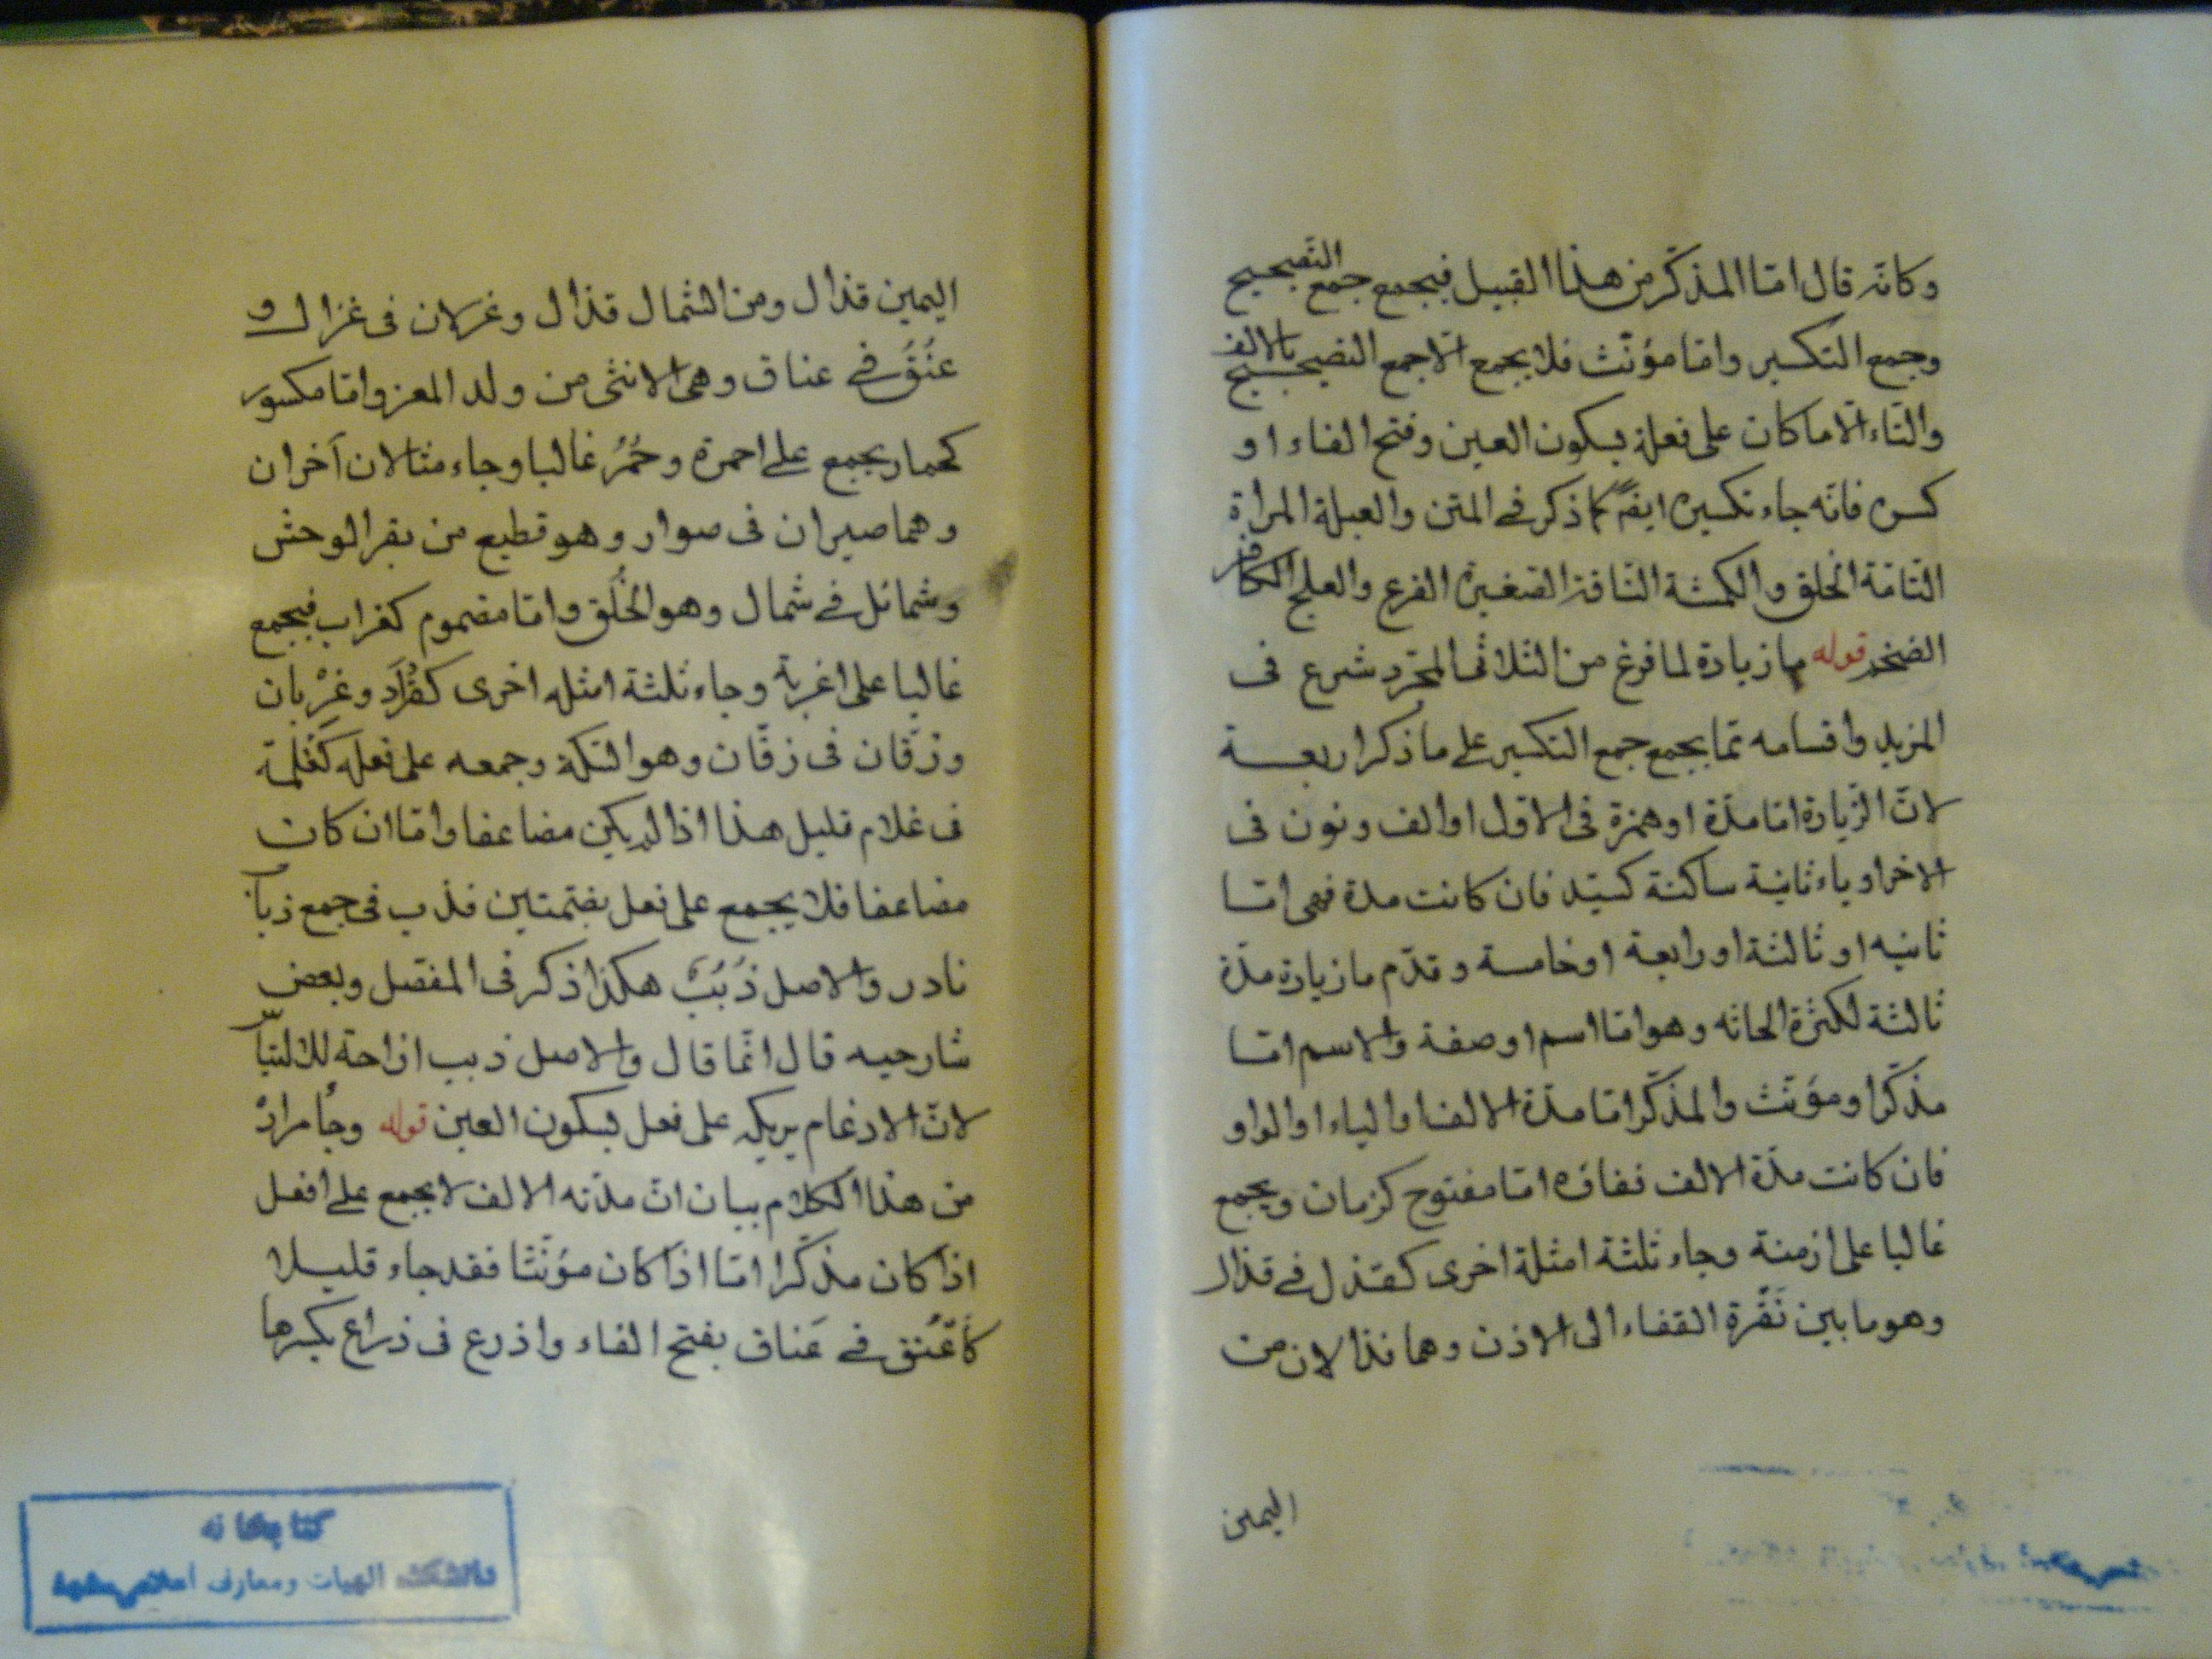 وكانّه قال امّا المذكّر من هذا القبيل فيجمع جمع التصحيح
وجمع التكسير وامّا مؤنّث فلا يجمع الّا جمع التصحيح بالالف
والتاء الّا ما كان على فعلة بسكون العين وفتح الفاء او
كسره فانّه جاء تكسيره ايضًا كما ذكر فى المتن والعبلة المراة
التامّة الخلق والكمشة الناقة الصغيرة الضرع والعلج الكافر
الضخم قوله وما زيادة لما فرغ من الثلاثى المجرّد شرع فى
المزيد واقسامه ممّا يجمع جمع التكسير على ما ذكر اربعة
لانّ الزّيادة امّا مدّة او همزة فى الاوّل او الف ونون فى
الاخر او ياء ثانية ساكنة كسيّد فان كانت مدة فهى امّا
ثانيه او ثالثة او رابعة او خامسة وقدّم ما زيادة مدّة
ثالثة لكثرة ابحاثه وهو امّا اسم او صفة والاسم امّا
مذكّر او مؤنّث والمذكّر امّا مدّة الالف او الياء او الواو
فان كانت مدّة الالف ففاؤه امّا مفتوح كزمان ويجمع
غالبا على ازمنة وجاء ثلثة امثلة اخرى كقذل فى قذال
وهو ما بين نُقْرة القفاء الى الاذن وهما قذالان من
اليمين
اليمين قذال ومن الشمال قذال وغزلان فى غزال و
عنُقُ فى عناق وهى الانثى من ولد المعز وامّا مكسور
كحمار يجمع على احمرة وحُمُرُ غالبا وجاء مثالان آخران
وهما صيران فى صوار وهو قطيع من بقر الوحش
وشمائل فى شمال وهو الخُلُق وامّا مضموم كغراب فيجمع
غالبا على اغربة وجاء ثلثة امثله اخرى كقُرُد وغِرْبان
وزقّان فى زقّان وهو السّكة وجمعه على فعله كغُلمة
فى غلام قليل هذا اذا لم يكن مضاعفا وامّا ان كان
مضاعفا فلا يجمع على فعل بضمّتين فذب فى جمع ذباب
نادر والاصل ذُبُبٌ هكذا ذكر فى المفصّل وبعض
شارحيه قال انّما قال والاصل ذبب ازاحة للالتباس
لانّ الادغام يريكه على فعل بسكون العين قوله وجاء مراده
من هذا الكلام بيان انّ مدّته الالف لا يجمع على افعل
اذا كان مذكّرا امّا اذا كان مؤنّثا فقد جاء قليلا
كاَعْنُق فى عَناق بفتح الفاء واذرع فى ذراع بكسرها
كتابخانه
دانشكده الهيات ومعارف اسلامى مشهد